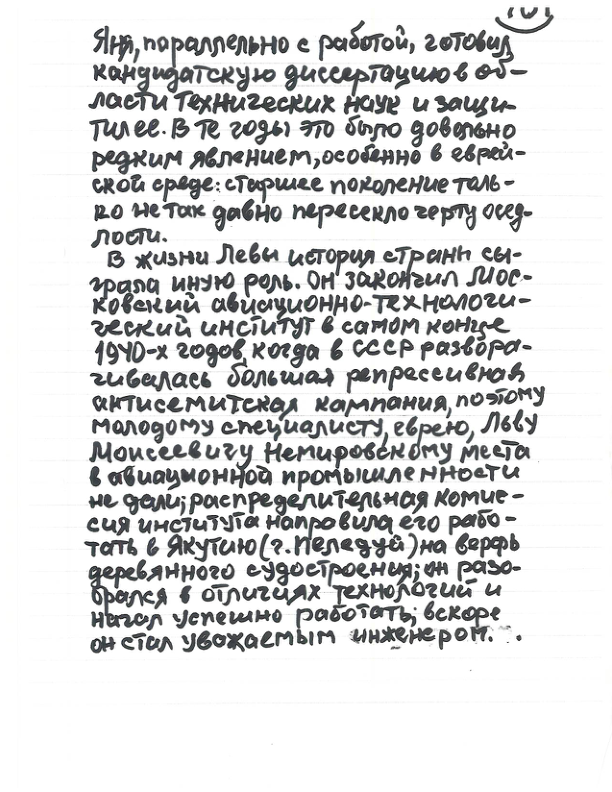 101
Яня, параллельно с работой, готовил
кандидатскую диссертацию в об-
ласти технических наук и защи-
тил ее. В те годы это было довольно
редким явлением, особенно в еврей-
ской среде: старшее поколение толь-
ко не так давно пересекло черту осед-
лости.
В жизни Левы история страны сы-
грала иную роль. Он закончил Мос-
ковский авиационно-технологи-
ческий институт в самом конце
1940-х годов, когда в СССР развора-
чивалась большая репрессивная
антисемитская кампания, поэтому
молодому специалисту, еврею, Льву
Моисеевичу Немировскому места
в авиационной промышленности
не дали; распределительная комис-
сия института направила его рабо-
тать в Якутию (г. Пеледуй) на верфь
деревянного судостроения; он разо-
брался в отличиях технологий и
начал успешно работать; вскоре
он стал уважаемым инженером.